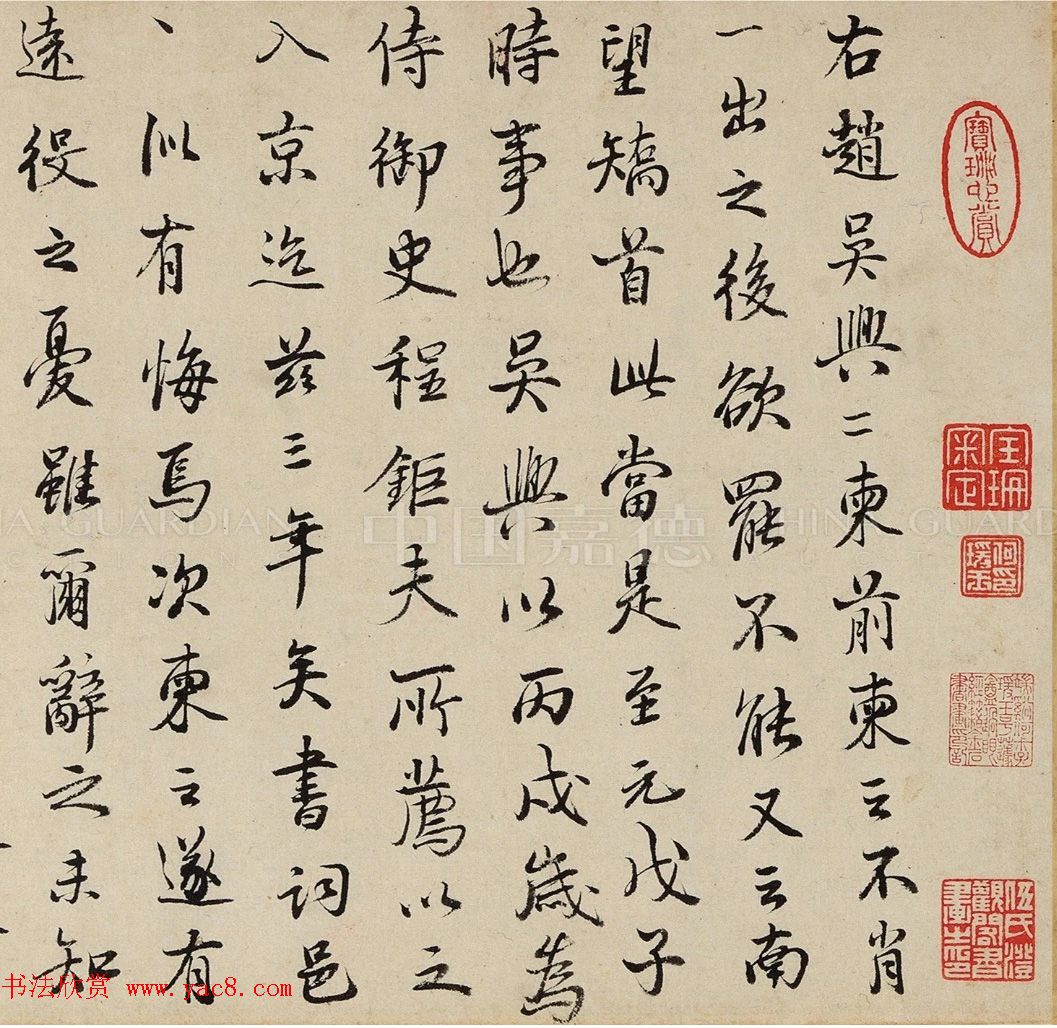 右趙吳興二柬前柬云不肖
一出之後欲罷不能又云南
望矯首此當是至元戊子
時事也吳興以丙戌歲為
侍御史程鉅夫所薦以之
入京迄茲三年矣書詞邑
丶似有悔焉次柬云遂有
遠役之憂雖爾辭之未知
伍氏儼觀閣書畫之印
中国嘉德
CHINA GUARDIAN
书法欣赏 www.yac8.com